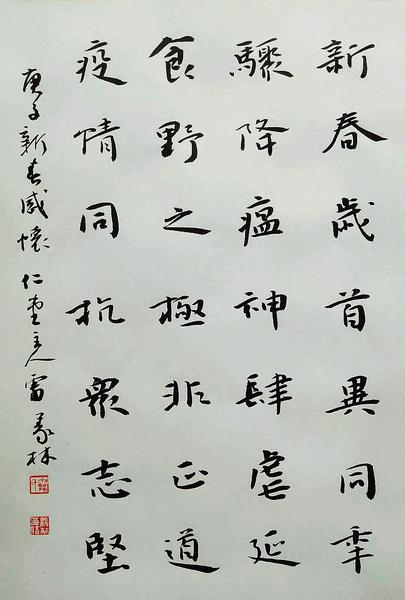 新春歲首異同年
驟降瘟神肆虐延
食野之極非正道
疫情同抗眾志堅
庚子新春感懷 仁里主人雷象林